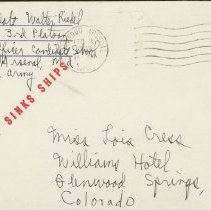 Walter Riedel
3rd Platoon
Officer Candidate School
Arsenal, Md.
Army
SINKS SHIPS
Miss Lois Cress
Williams Hotel
Glenwood Springs,
Colorado